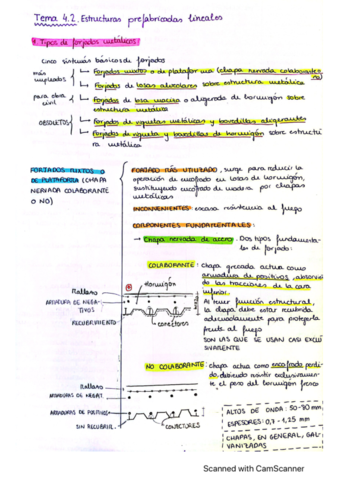 Tema 4.2. Estructuras prefabricadas lineales
4. Tipos de forjados metálicos:
Cinco sistemas básicos de forjados
más empleados
Forjados mixtos o de plataforma (chapa nervada colaborante o no)
Forjados de losas alveolares sobre estructura metálica
para obra civil
Forjados de losa maciza o aligerada de hormigón sobre estructura metálica
OBSOLETOS
Forjados de viguetas metálicas y bovedillas aligerantes
Forjados de vigueta y bovedillas de hormigón sobre estructura metálica
FORJADOS MIXTOS O DE PLATAFORMA (CHAPA NERVADA COLABORANTE O NO)
FORJADO MÁS UTILIZADO, surge para reducir la
operación de encofrado en losas de hormigón,
sustituyendo encofrado de madera por chapas
metálicas
INCONVENIENTES: escasa resistencia al fuego
COMPONENTES FUNDAMENTALES:
Chapa nervada de acero. Dos tipos fundamentales de forjado:
COLABORANTE: chapa grecada actúa como
armadura de positivos, absorviendo las tracciones de la cara
inferior.
Al tener función estructural,
la chapa debe estar recubierta
adecuadamente para protegerla
frente al fuego
SON LAS QUE SE USAN CASI EXCLUSIVAMENTE
hormigón
Mallazo
ARMADURA DE NEGATIVOS
RECUBRIMIENTO
conectores
NO COLABORANTE: chapa actúa como encofrado perdido, debiendo resistir exclusivamente
el peso del hormigón fresco
Mallazo
ARMADURAS DE NEGAT.
ARMADURAS DE POSITIVOS
SIN RECUBRIR.
CONECTORES
ALTOS DE ONDA: 50-80 mm
ESPESORES: 0,7 - 1,25 mm
CHAPAS, EN GENERAL, GALVANIZADAS
Scanned with CamScanner